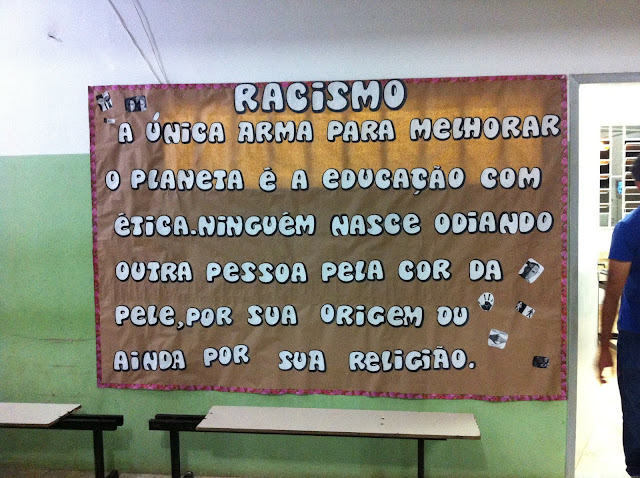 RACISMO
A ÚNICA ARMA PARA MELHORAR
O PLANETA É A EDUCAÇÃO COM
ÉTICA. NINGUÉM NASCE ODIANDO
OUTRA PESSOA PELA COR DA
PELE, POR SUA ORIGEM OU
AINDA POR SUA RELIGIÃO.